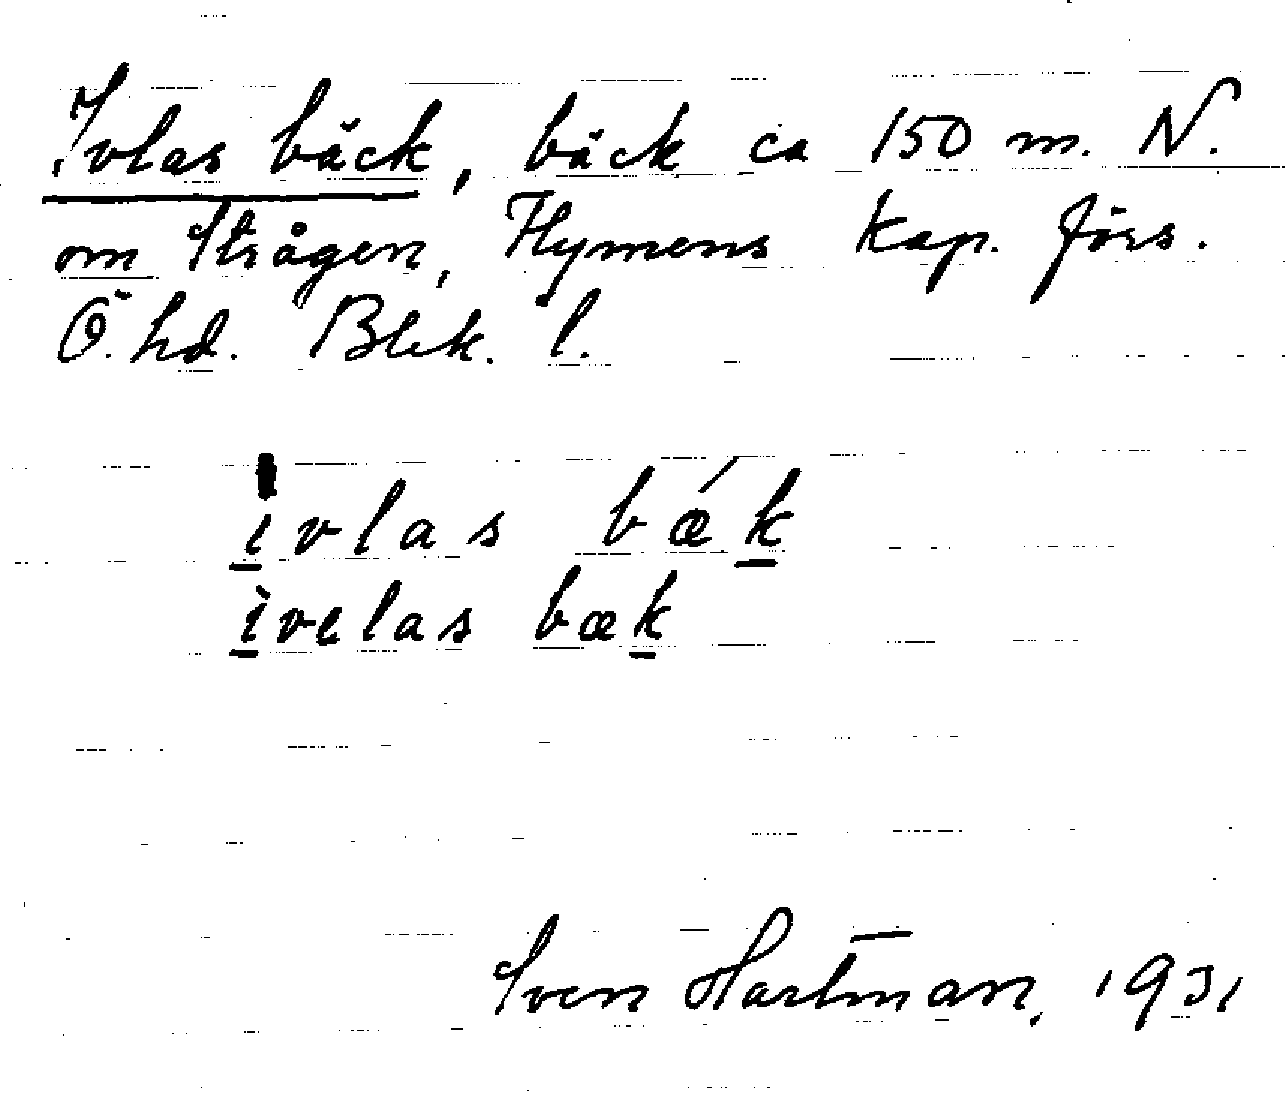 Ivlas bäck, bäck ca 150 m. N.
om Strågen, Flymens kap. förs.
Ö. hd. Blek. l.
ivlas bǽk
ìvelas bæk
Sven Hartman, 1931